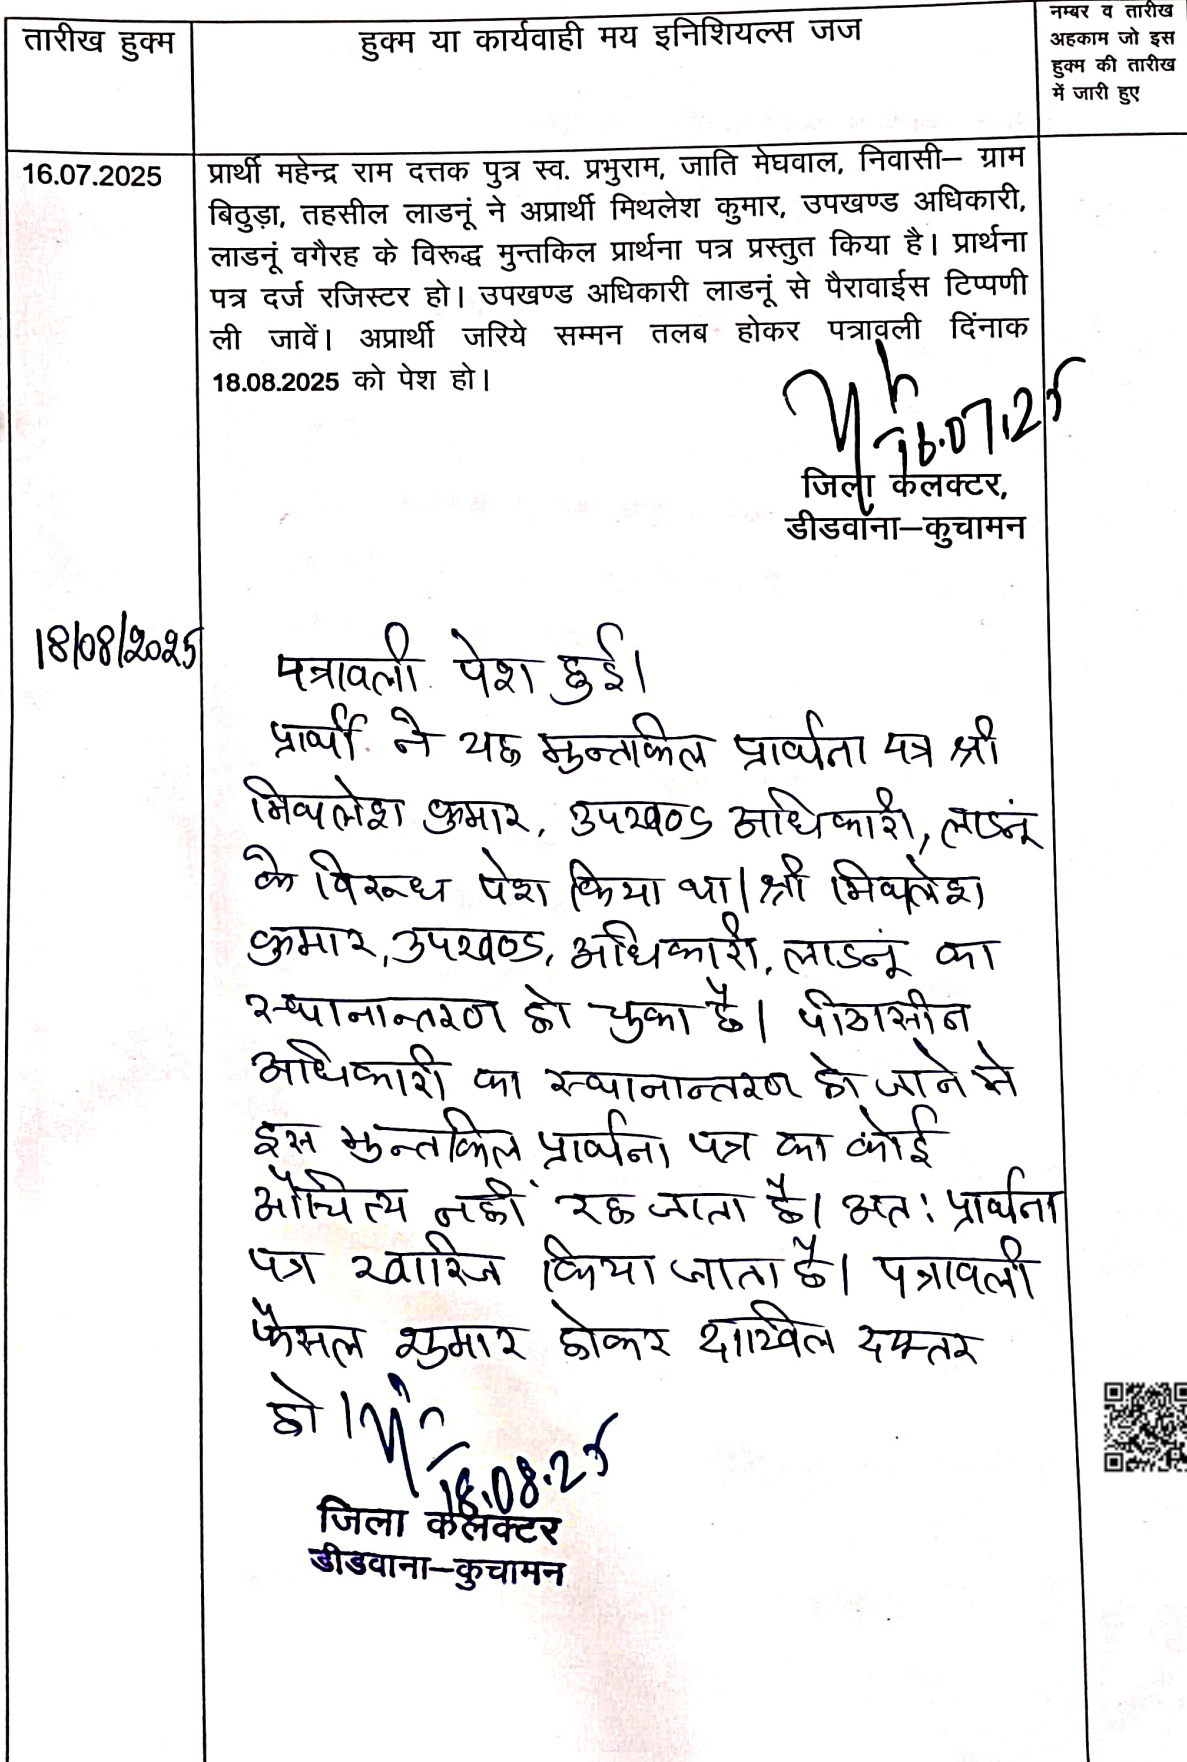 तारीख हुक्म
हुक्म या कार्यवाही मय इनिशियल्स जज
नम्बर व तारीख
अहकाम जो इस
हुक्म की तारीख
में जारी हुए
16.07.2025
प्रार्थी महेन्द्र राम दत्तक पुत्र स्व. प्रभुराम, जाति मेघवाल, निवासी– ग्राम
बिठुड़ा, तहसील लाडनूं ने अप्रार्थी मिथलेश कुमार, उपखण्ड अधिकारी,
लाडनूं वगैरह के विरूद्ध मुन्तकिल प्रार्थना पत्र प्रस्तुत किया है। प्रार्थना
पत्र दर्ज रजिस्टर हो। उपखण्ड अधिकारी लाडनूं से पैरावाईस टिप्पणी
ली जावें। अप्रार्थी जरिये सम्मन तलब होकर पत्रावली दिंनाक
18.08.2025 को पेश हो।
16.07.25
जिला कलक्टर,
डीडवाना–कुचामन
18/08/2025
पत्रावली पेश हुई।
प्रार्थी ने यह मुन्तकिल प्रार्थना पत्र श्री
मिथलेश कुमार, उपखण्ड अधिकारी, लाडनूं
के विरुध पेश किया था। श्री मिथलेश
कुमार, उपखण्ड, अधिकारी, लाडनूं का
स्थानान्तरण हो चुका है। पीठासीन
अधिकारी का स्थानान्तरण हो जाने से
इस मुन्तकिल प्रार्थना पत्र का कोई
औचित्य नहीं रह जाता है। अतः प्रार्थना
पत्र खारिज किया जाता है। पत्रावली
फैसल शुमार होकर दाखिल दफ्तर
हो।
18.08.25
जिला कलक्टर
डीडवाना–कुचामन